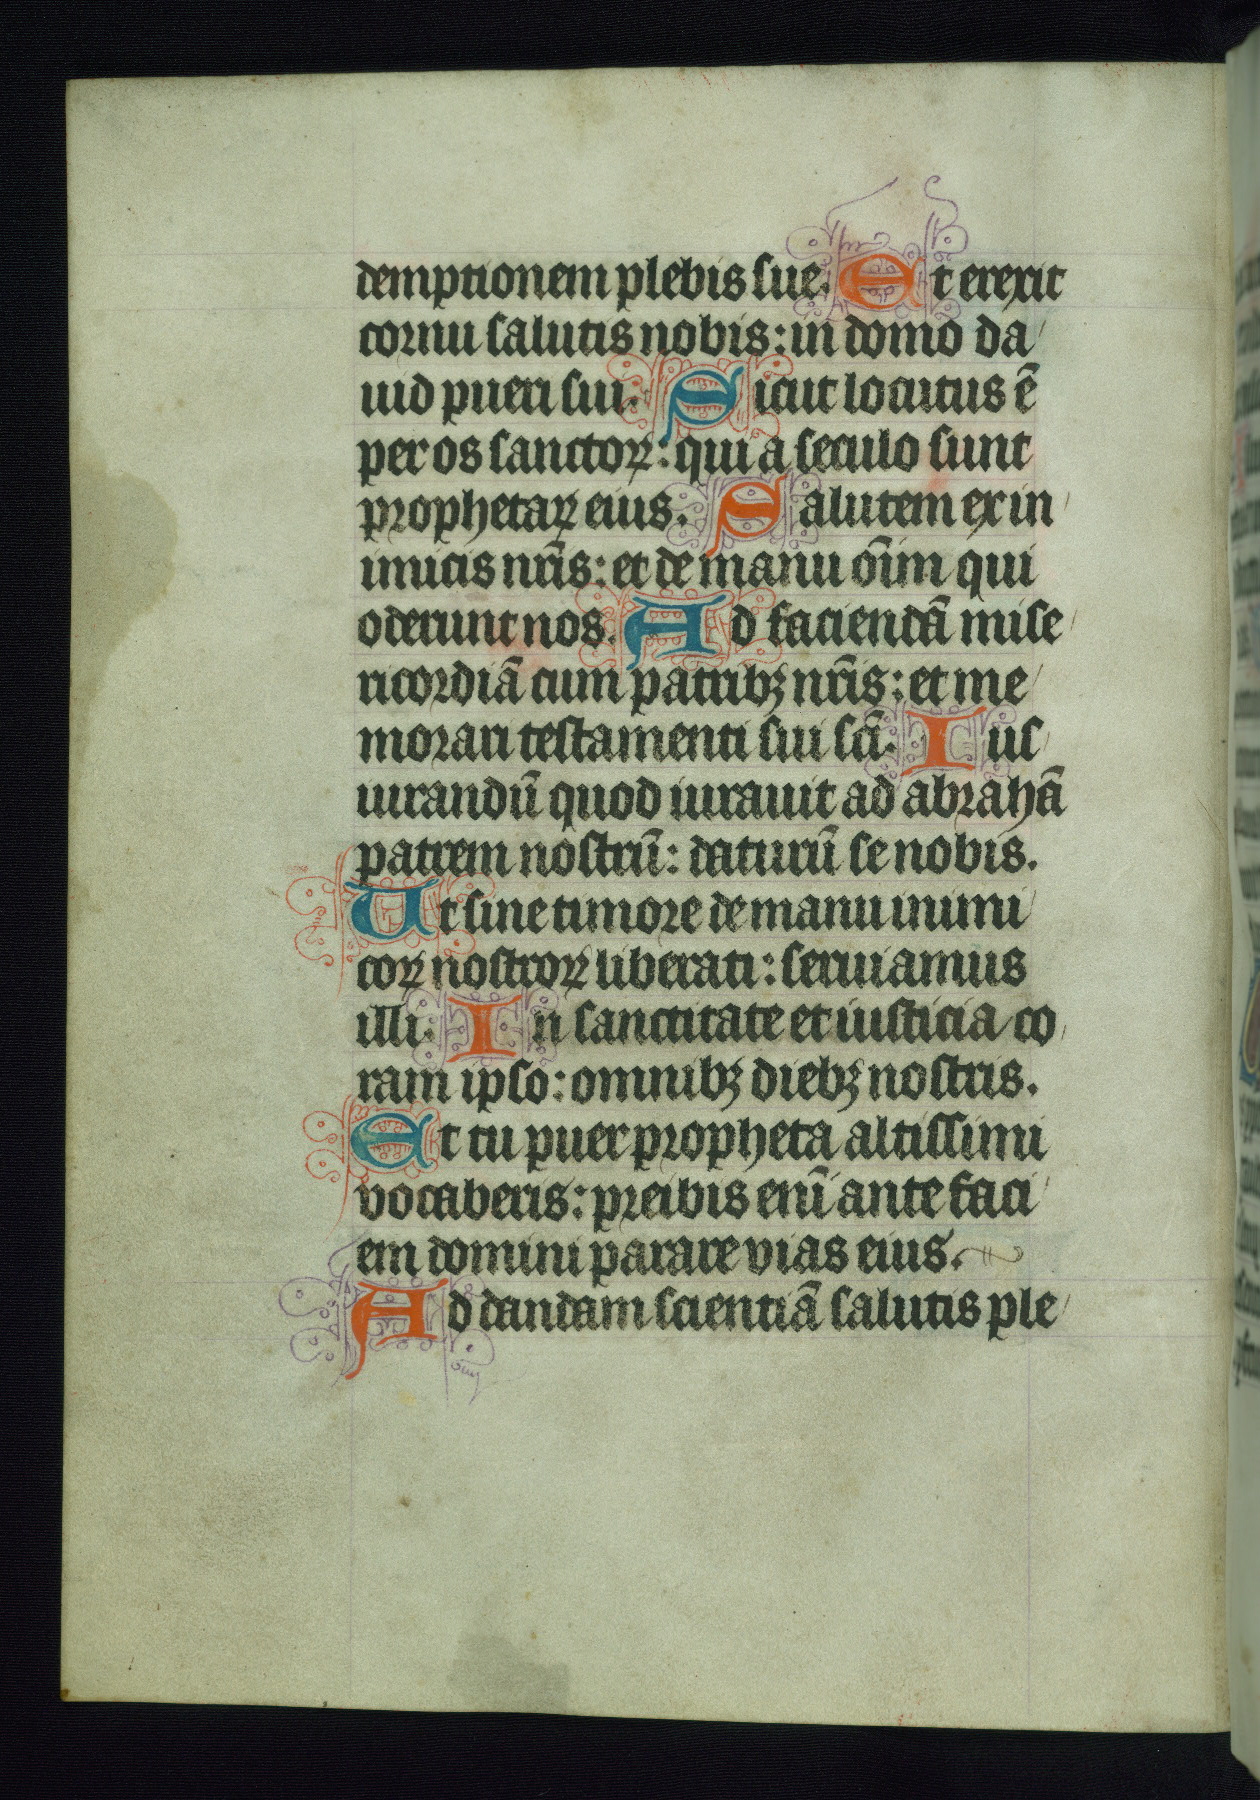 demptionem plebis sue. Et erexit
cornu salutis nobis: in domo da/
uid pueri sui. Sicut locutus ē
per os sanctoꝝ: qui a seculo sunt
prophetaꝝ eius. Salutem ex in/
imicis nr̄is: et de manu oīm qui
oderunt nos. Ad faciendā mise/
ricordiā cum patribꝫ nr̄is: et me/
morari testamenti sui sc̄i. Ius/
iurandū quod iurauit ad abrahā
patrem nostrū: daturū se nobis.
Ut sine timore de manu inimi/
coꝝ nostroꝝ liberati: seruiamus
illi. In sanctitate et iusticia co/
ram ipso: omnibꝫ diebꝫ nostris.
Et tu puer propheta altissimi
vocaberis: preibis enī ante faci/
em domini parare vias eius.
Ad dandam scientiā salutis ple/